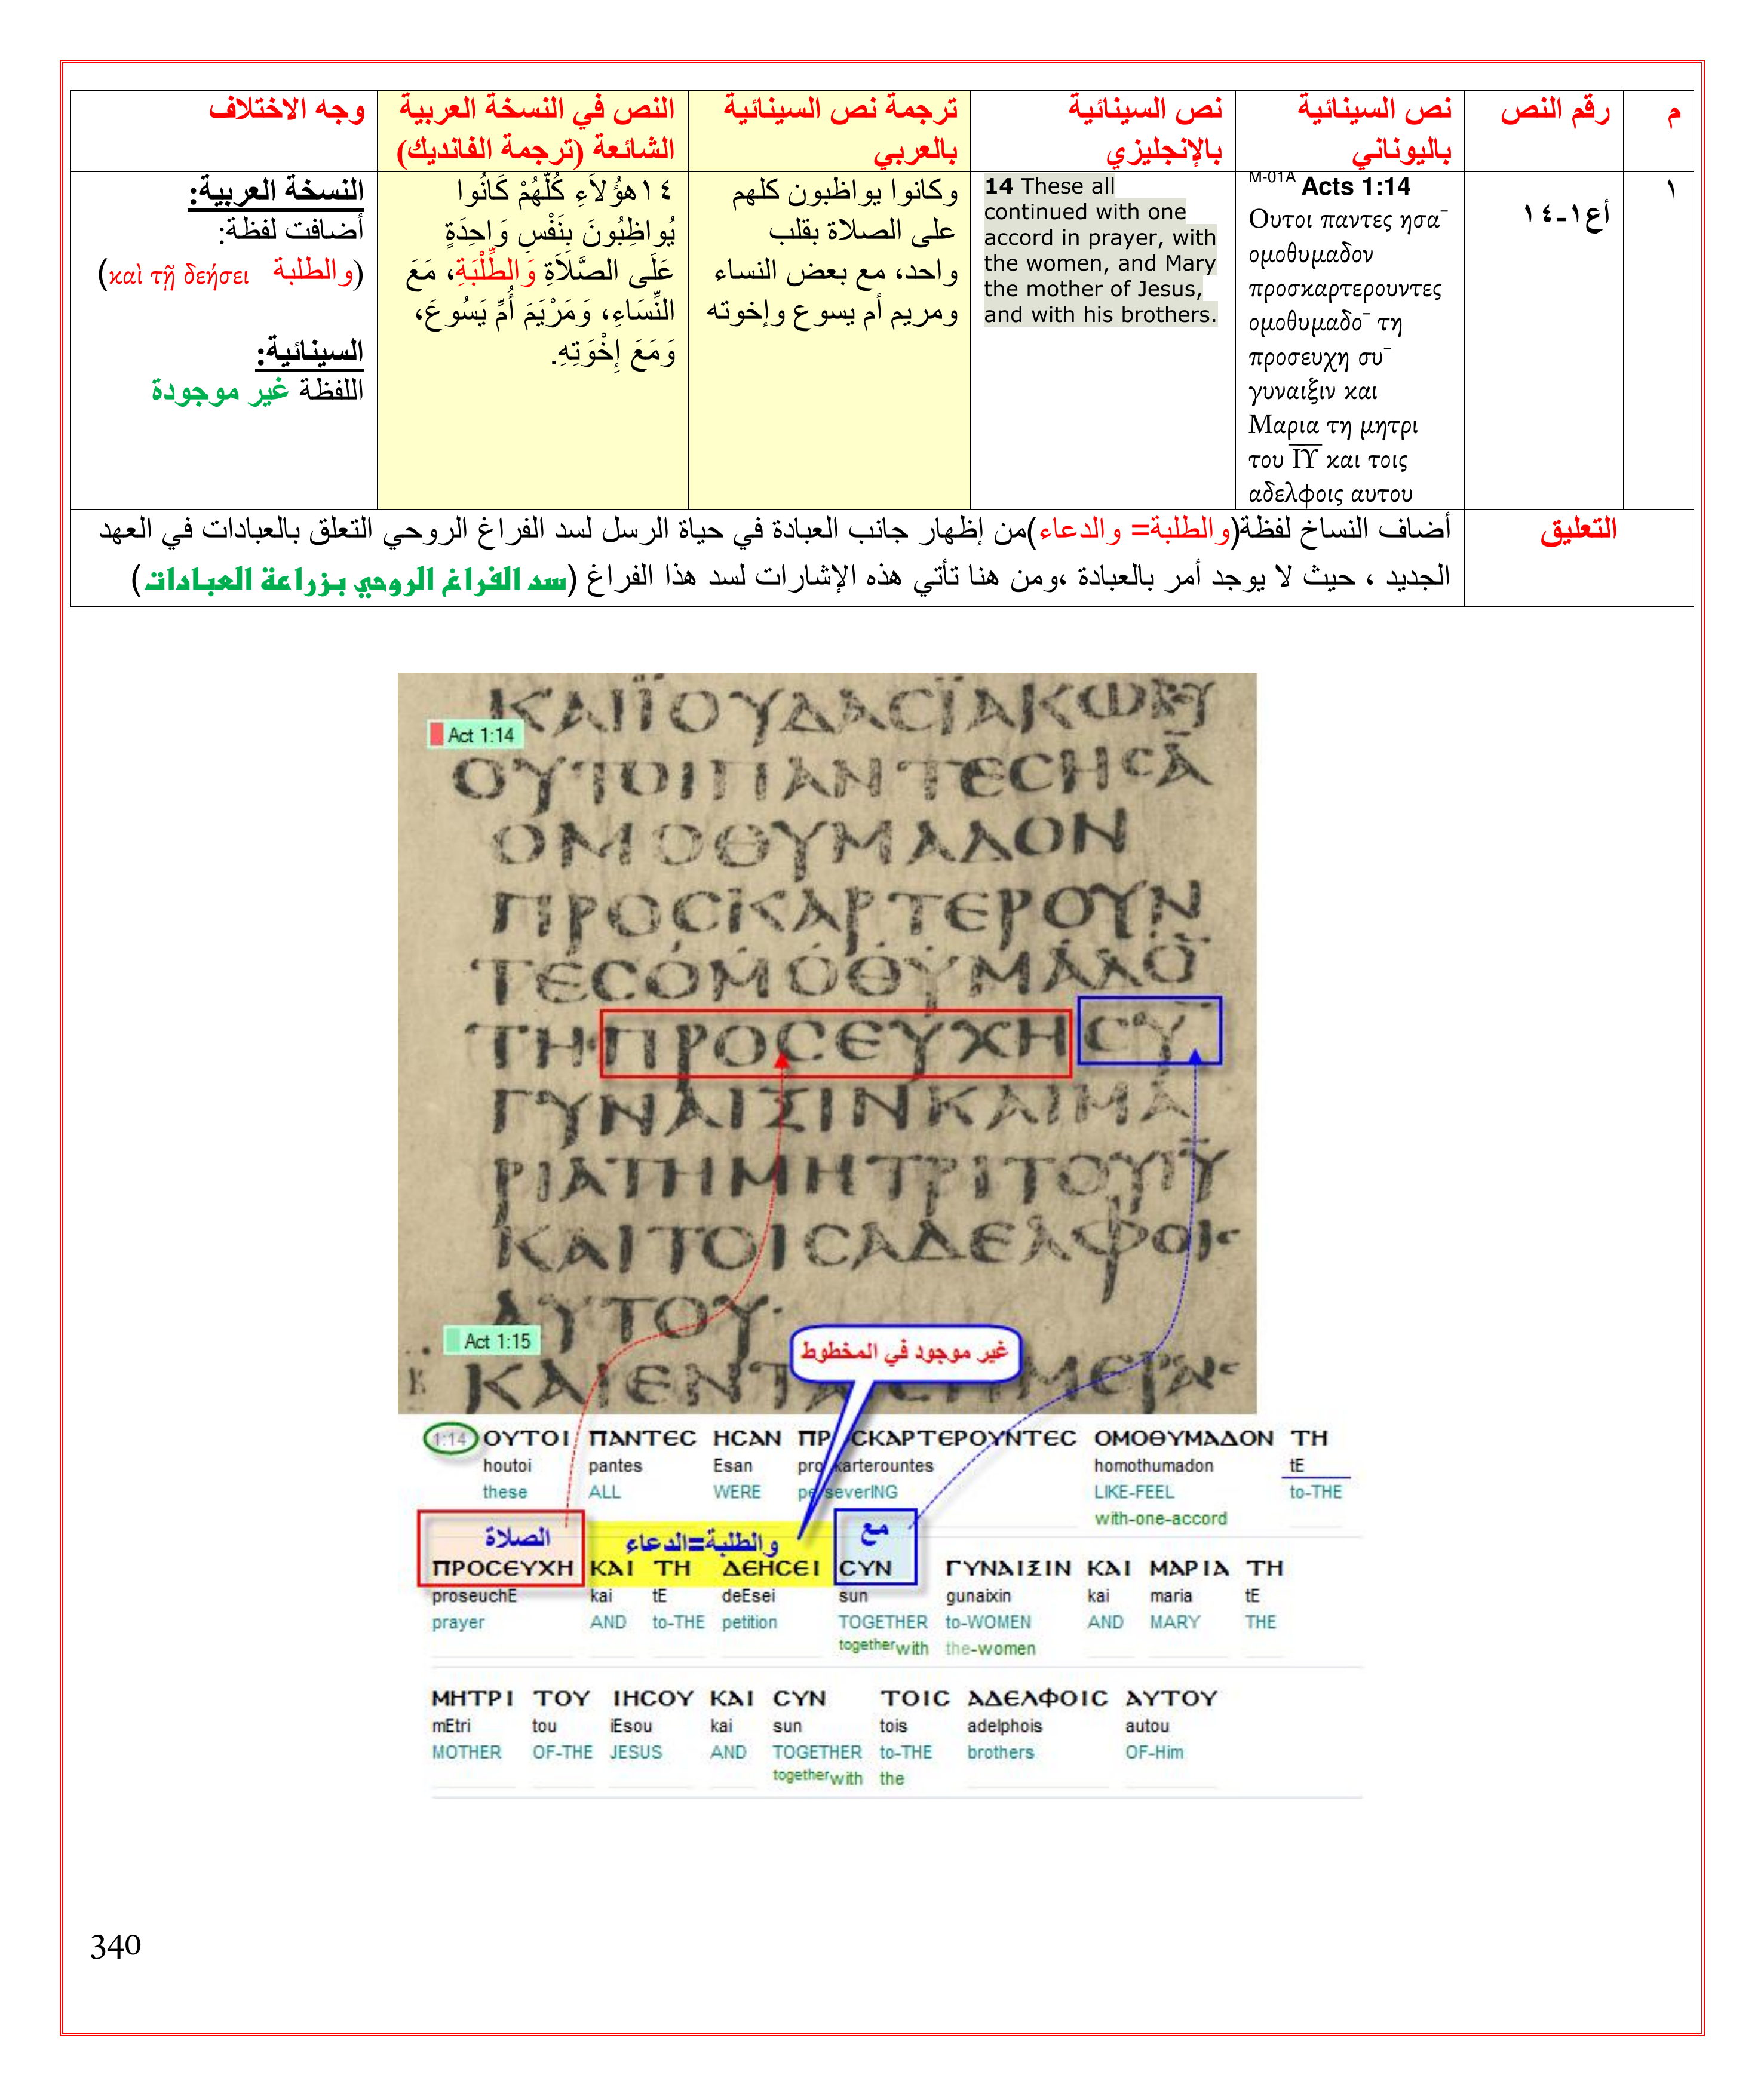 م
رقم النص
نص السينائية
باليوناني
نص السينائية
بالإنجليزي
ترجمة نص السينائية
بالعربي
النص في النسخة العربية
الشائعة (ترجمة الفانديك)
وجه الاختلاف
١
أع١-١٤
M-01A Acts 1:14
Ουτοι παντες ησα¯
ομοθυμαδον
προσκαρτερουντες
ομοθυμαδο¯ τη
προσευχη συ¯
γυναιξιν και
Μαρια τη μητρι
του ΙΥ και τοις
αδελφοις αυτου
14 These all
continued with one
accord in prayer, with
the women, and Mary
the mother of Jesus,
and with his brothers.
وكانوا يواظبون كلهم
على الصلاة بقلب
واحد، مع بعض النساء
ومريم أم يسوع وإخوته
١٤هؤُلاَءِ كُلُّهُمْ كَانُوا
يُواظِبُونَ بِنَفْسٍ وَاحِدَةٍ
عَلَى الصَّلاَةِ وَالطِّلْبَةِ، مَعَ
النِّسَاءِ، وَمَرْيَمَ أُمِّ يَسُوعَ،
وَمَعَ إِخْوَتِهِ.
النسخة العربية:
أضافت لفظة:
(والطلبة καὶ τῇ δεήσει)
السينائية:
اللفظة غير موجودة
التعليق
أضاف النساخ لفظة(والطلبة= والدعاء)من إظهار جانب العبادة في حياة الرسل لسد الفراغ الروحي التعلق بالعبادات في العهد
الجديد ، حيث لا يوجد أمر بالعبادة ،ومن هنا تأتي هذه الإشارات لسد هذا الفراغ (سد الفراغ الروحي بزراعة العبادات)
ΚΑΙΪΟΥΔΑCΪΑΚΩΒΟΥ
Act 1:14
ΟΥΤΟΙΠΑΝΤΕCΗCΑ̅
ΟΜΟΘΥΜΑΔΟΝ
ΠΡΟCΚΑΡΤΕΡΟΥΝ
ΤΕCΟΜΟΘΥΜΑΔΟ̅
ΤΗΠΡΟCΕΥΧΗCΥ̅
ΓΥΝΑΙΞΙΝΚΑΙΜΑ
ΡΙΑΤΗΜΗΤΡΙΤΟΥΙ̅Υ̅
ΚΑΙΤΟΙCΑΔΕΛΦΟΙC
ΑΥΤΟΥ·
Act 1:15
غير موجود في المخطوط
1:14 ΟΥΤΟΙ ΠΑΝΤΕC ΗCΑΝ ΠΡ CΚΑΡΤΕΡΟΥΝΤΕC ΟΜΟΘΥΜΑΔΟΝ ΤΗ
houtoi pantes Esan pro karterountes homothumadon tE
these ALL WERE pe severING LIKE-FEEL to-THE
with-one-accord
الصلاة والطلبة=الدعاء مع
ΠΡΟCΕΥΧΗ ΚΑΙ ΤΗ ΔΕΗCΕΙ CΥΝ ΓΥΝΑΙΞΙΝ ΚΑΙ ΜΑΡΙΑ ΤΗ
proseuchE kai tE deEsei sun gunaixin kai maria tE
prayer AND to-THE petition TOGETHER to-WOMEN AND MARY THE
together with the-women
ΜΗΤΡΙ ΤΟΥ ΙΗCΟΥ ΚΑΙ CΥΝ ΤΟΙC ΑΔΕΛΦΟΙC ΑΥΤΟΥ
mEtri tou iEsou kai sun tois adelphois autou
MOTHER OF-THE JESUS AND TOGETHER to-THE brothers OF-Him
together with the
340